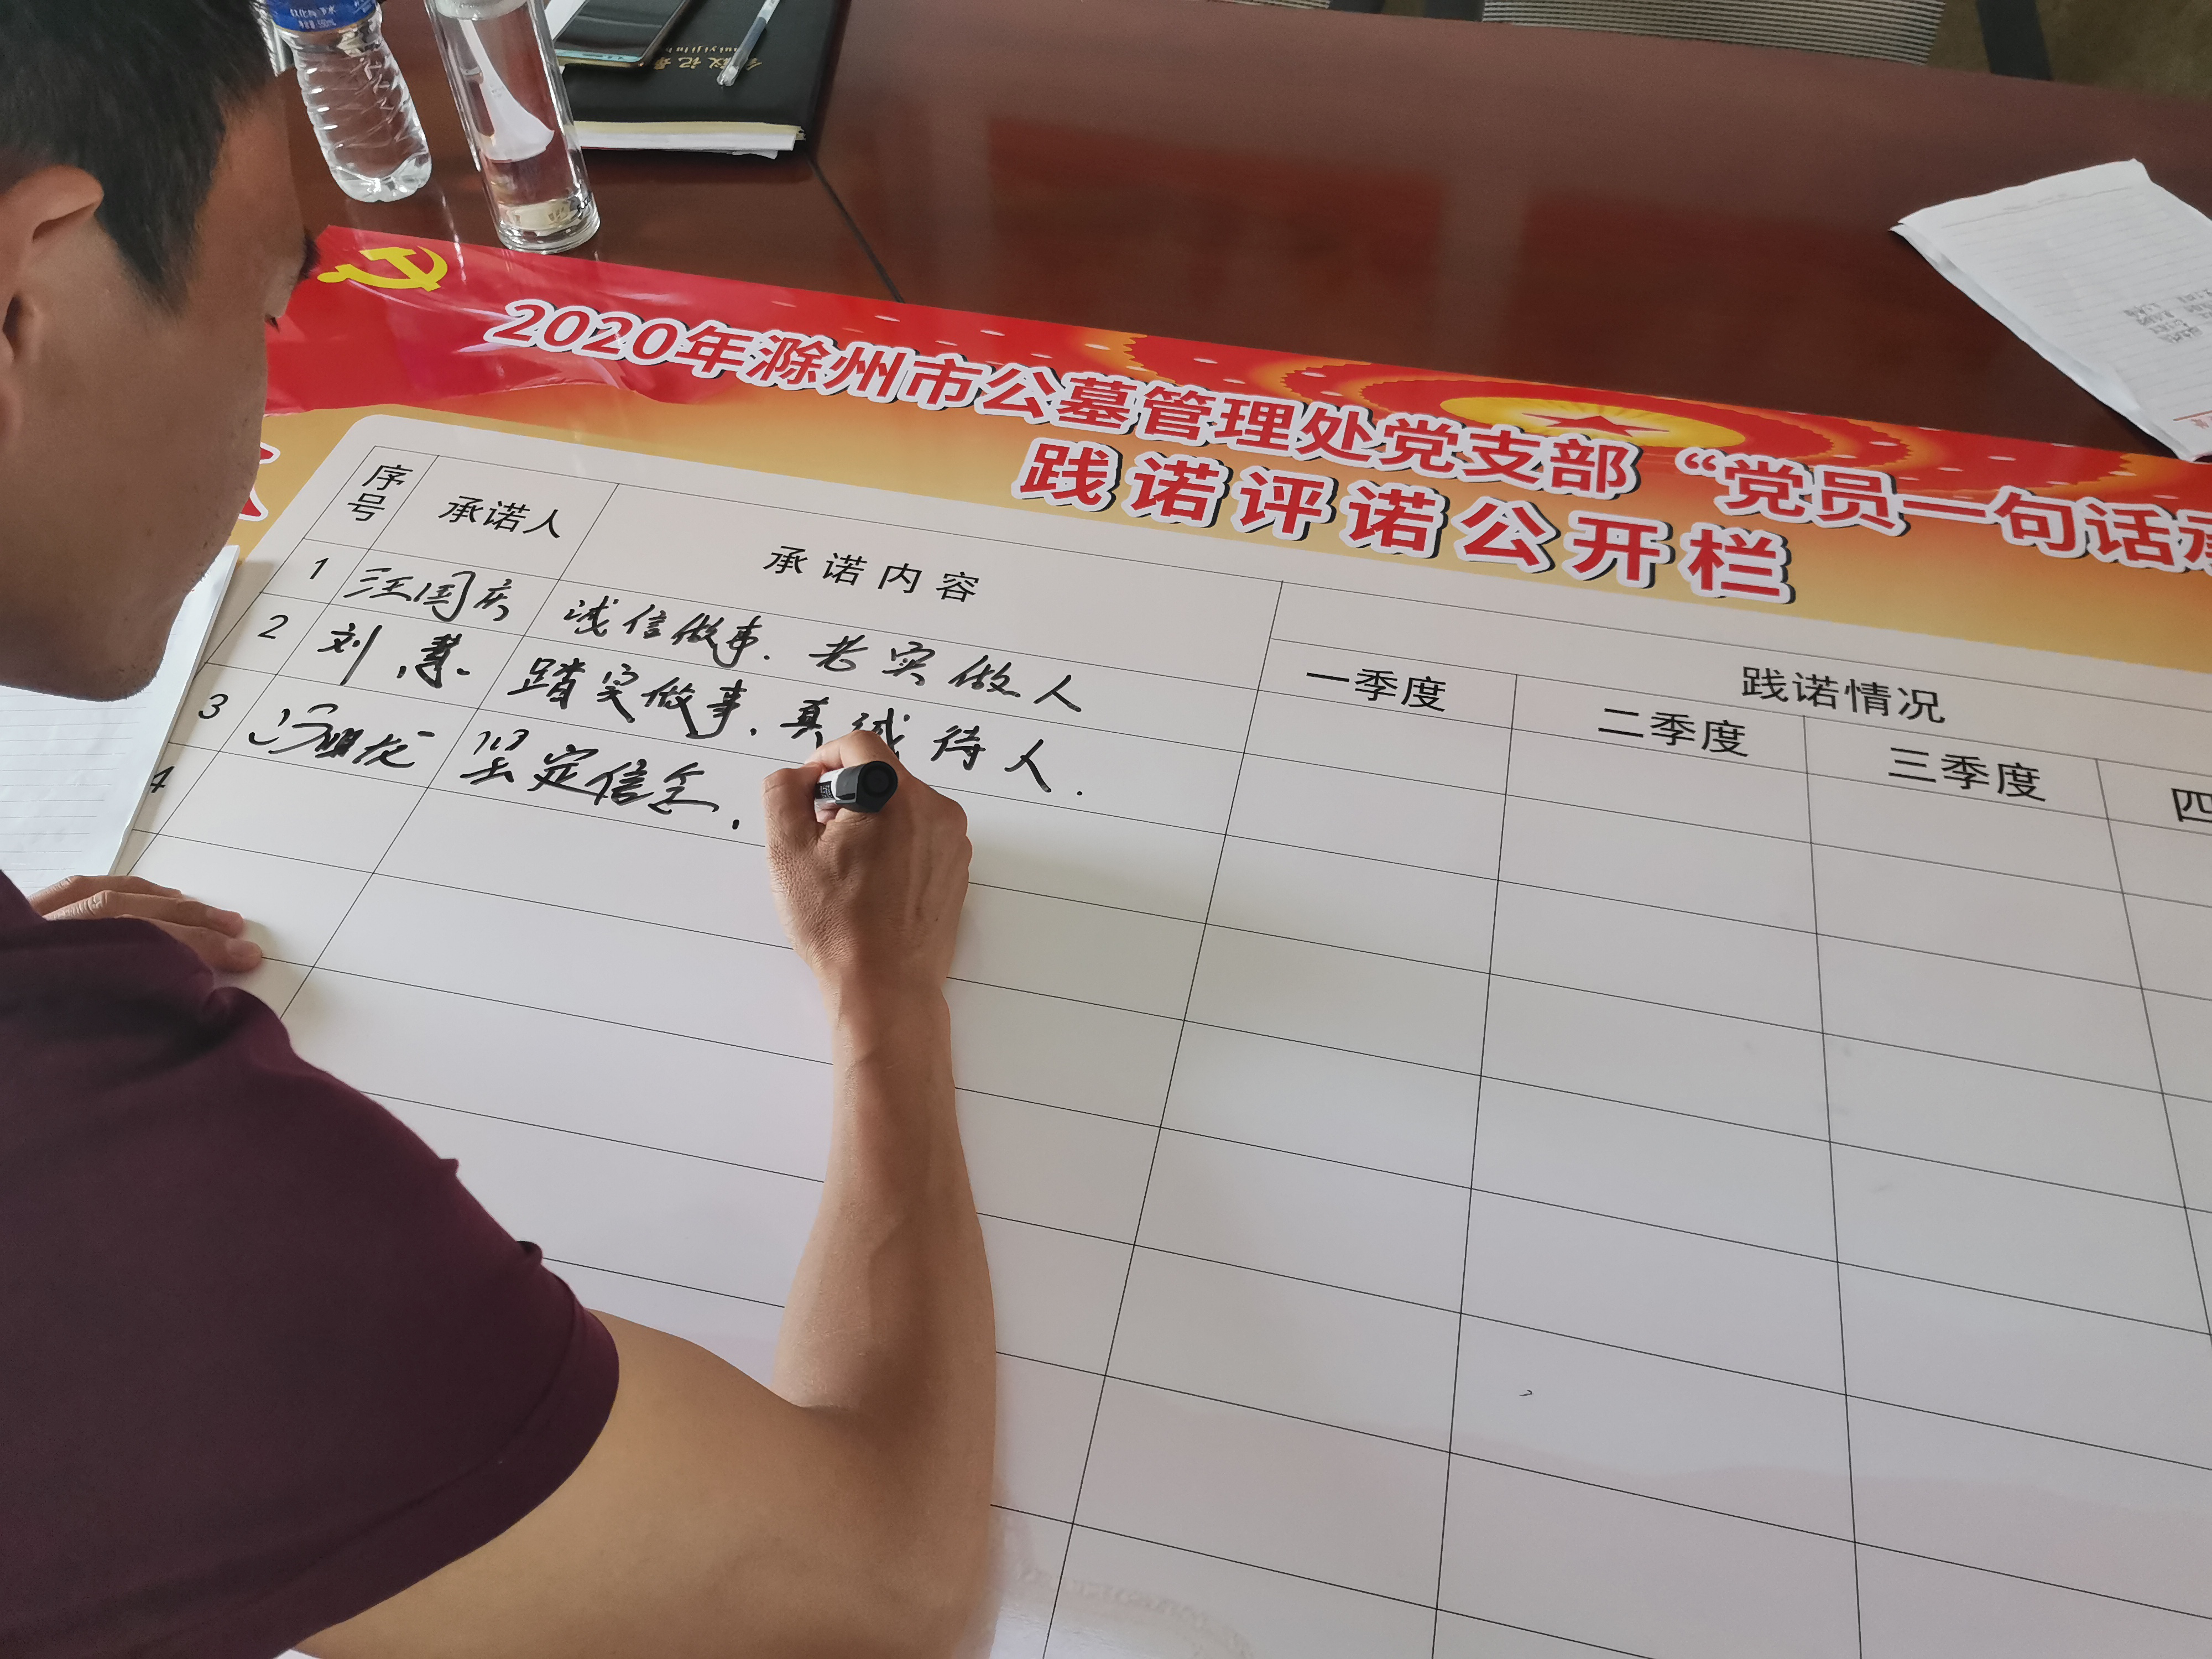 2020年滁州市公墓管理处党支部“党员一句话承
践诺评诺公开栏
序号 承诺人 承诺内容 践诺情况
一季度 二季度 三季度 四
1 汪国庆 诚信做事.老实做人
2 刘慧. 踏实做事.真诚待人.
3 冯明龙 坚定信念.
4